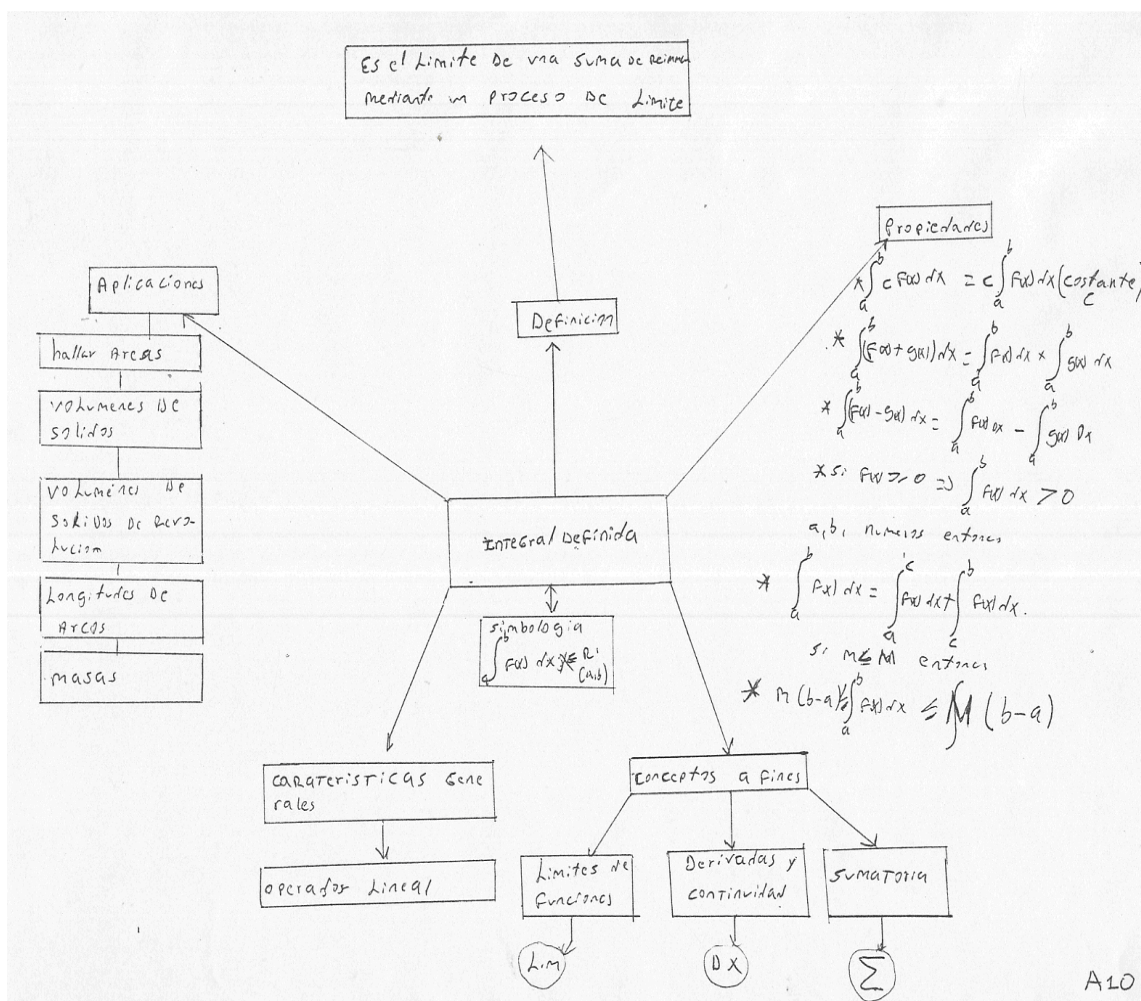 Es el Limite De una suma De Reimman
mediante un proceso De Limite
Propiedades
Aplicaciones
Definicion
hallar Areas
volumenes De
solidos
volumenes De
solidos De Revo-
lucion
Longitudes De
Arcos
masas
* ∫_a^b c F(x) dx = c ∫_a^b F(x) dx (costante)
c
* ∫_a^b (F(x) + g(x)) dx = ∫_a^b F(x) dx + ∫_a^b g(x) dx
* ∫_a^b (F(x) - g(x)) dx = ∫_a^b F(x) Dx - ∫_a^b g(x) Dx
* si F(x) > 0 => ∫_a^b F(x) dx > 0
a, b, numeros entonces
* ∫_a^b F(x) dx = ∫_a^c F(x) dx + ∫_c^b F(x) dx.
Si m ≤ M entonces
* m (b-a) ≤ ∫_a^b F(x) dx ≤ M (b-a)
Integral Definida
simbologia
∫_a^b F(x) dx
(a,b)
CARATERISTICAS Gene
rales
operador Lineal
Conceptos a fines
Limites de
funciones
Derivadas y
continuidad
SUMATORIA
Lim
DX
Σ
A10